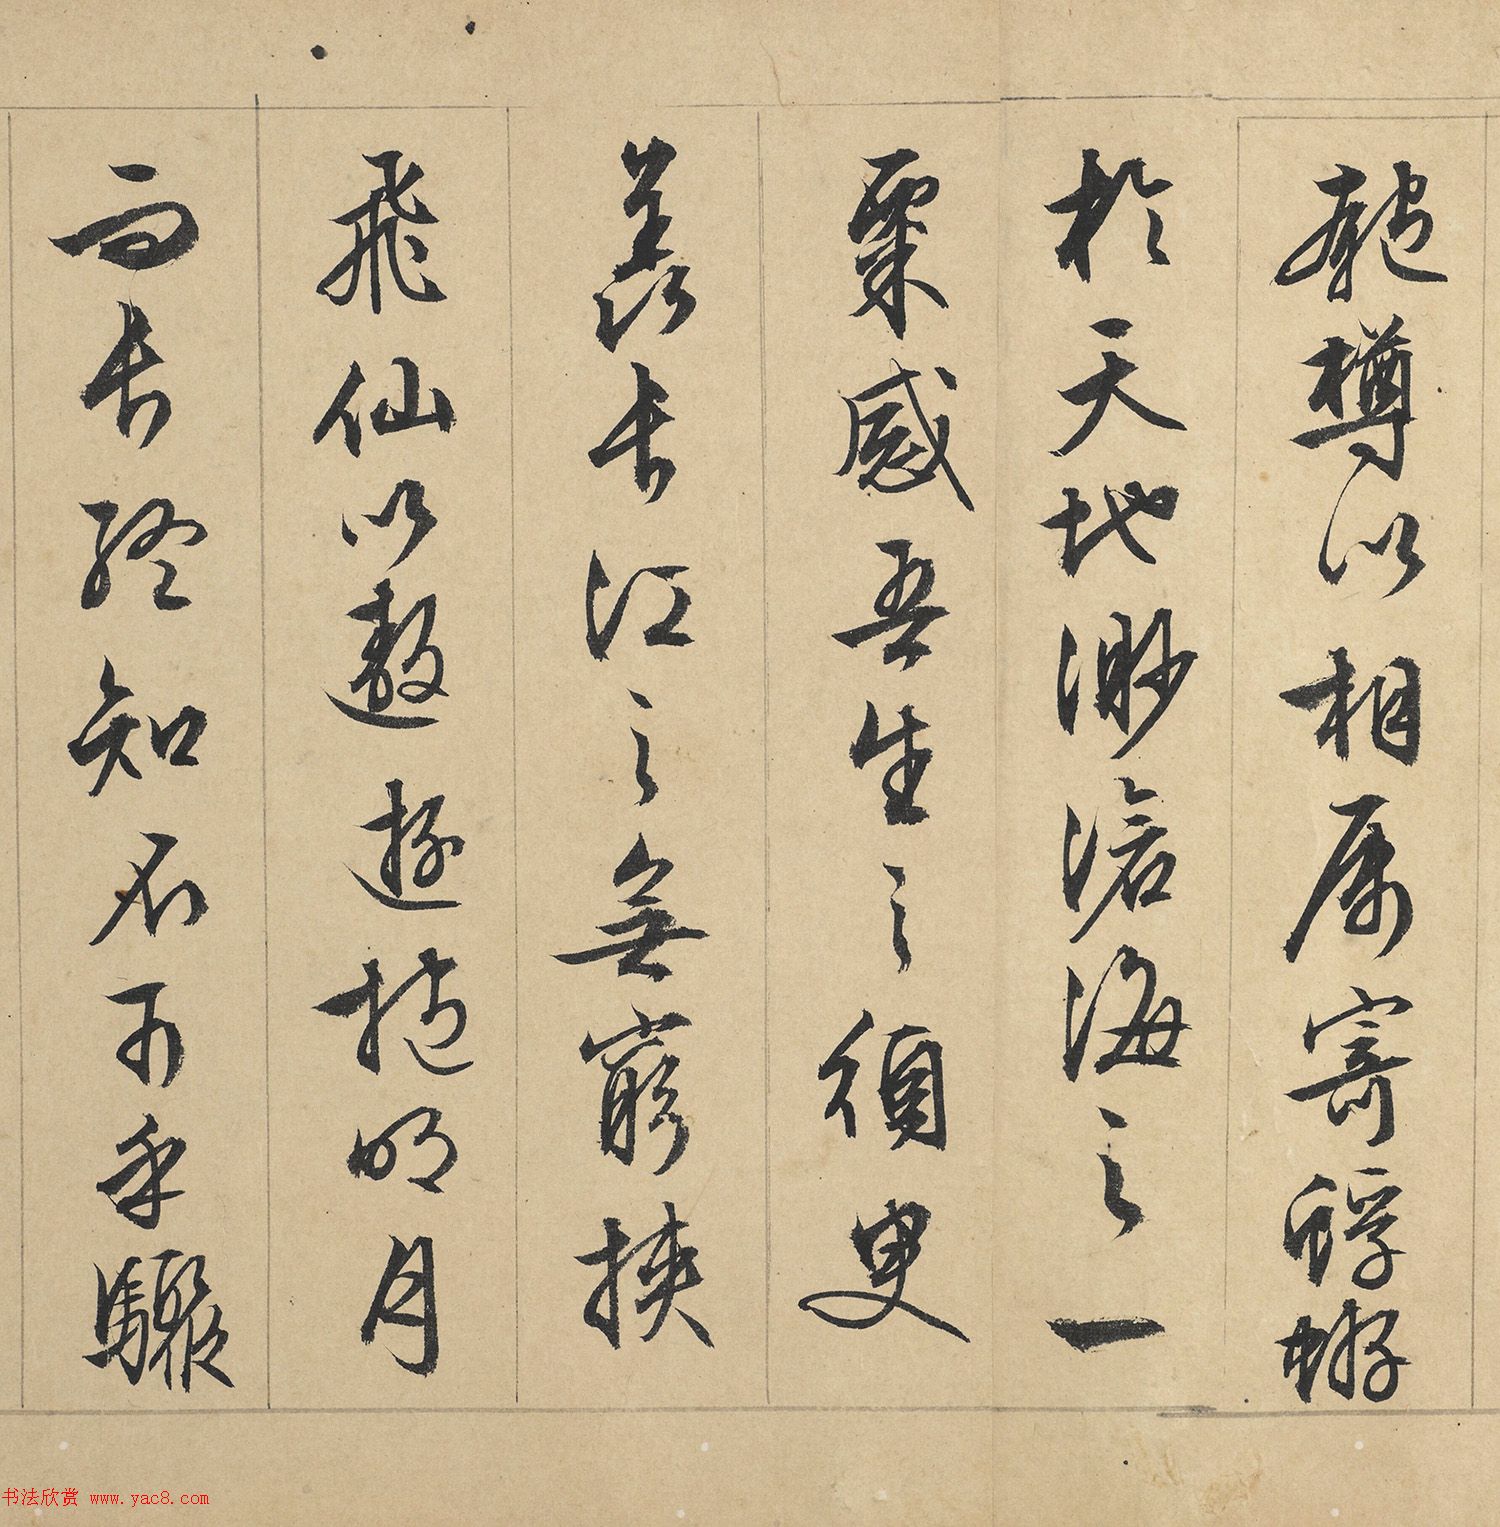 匏樽以相属寄蜉蝣
於天地渺滄海之一
粟感吾生之須臾
羨長江之無窮挾
飛仙以遨遊抱明月
而長終知不可乎驟
书法欣赏 www.yac8.com